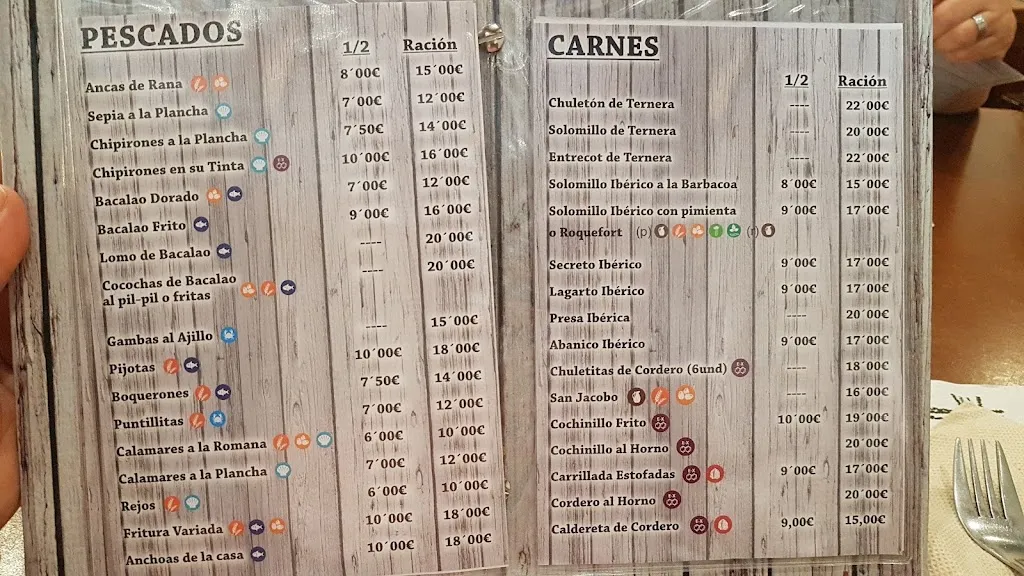 PESCADOS
1/2 Ración
Ancas de Rana 8´00€ 15´00€
Sepia a la Plancha 7´00€ 12´00€
Chipirones a la Plancha 7´50€ 14´00€
Chipirones en su Tinta 10´00€ 16´00€
Bacalao Dorado 7´00€ 12´00€
Bacalao Frito 9´00€ 16´00€
Lomo de Bacalao ---- 20´00€
Cocochas de Bacalao ---- 20´00€
al pil-pil o fritas
Gambas al Ajillo ---- 15´00€
Pijotas 10´00€ 18´00€
Boquerones 7´50€ 14´00€
Puntillitas 7´00€ 12´00€
Calamares a la Romana 6´00€ 10´00€
Calamares a la Plancha 7´00€ 12´00€
Rejos 6´00€ 10´00€
Fritura Variada 10´00€ 18´00€
Anchoas de la casa 10´00€ 18´00€
CARNES
1/2 Ración
Chuletón de Ternera ---- 22´00€
Solomillo de Ternera ---- 20´00€
Entrecot de Ternera ---- 22´00€
Solomillo Ibérico a la Barbacoa 8´00€ 15´00€
Solomillo Ibérico con pimienta 9´00€ 17´00€
o Roquefort (p) (r)
Secreto Ibérico 9´00€ 17´00€
Lagarto Ibérico 9´00€ 17´00€
Presa Ibérica ---- 20´00€
Abanico Ibérico 9´00€ 17´00€
Chuletitas de Cordero (6und) ---- 18´00€
San Jacobo ---- 16´00€
Cochinillo Frito 10´00€ 19´00€
Cochinillo al Horno 20´00€
Carrillada Estofadas 9´00€ 17´00€
Cordero al Horno 20´00€
Caldereta de Cordero 9,00€ 15,00€